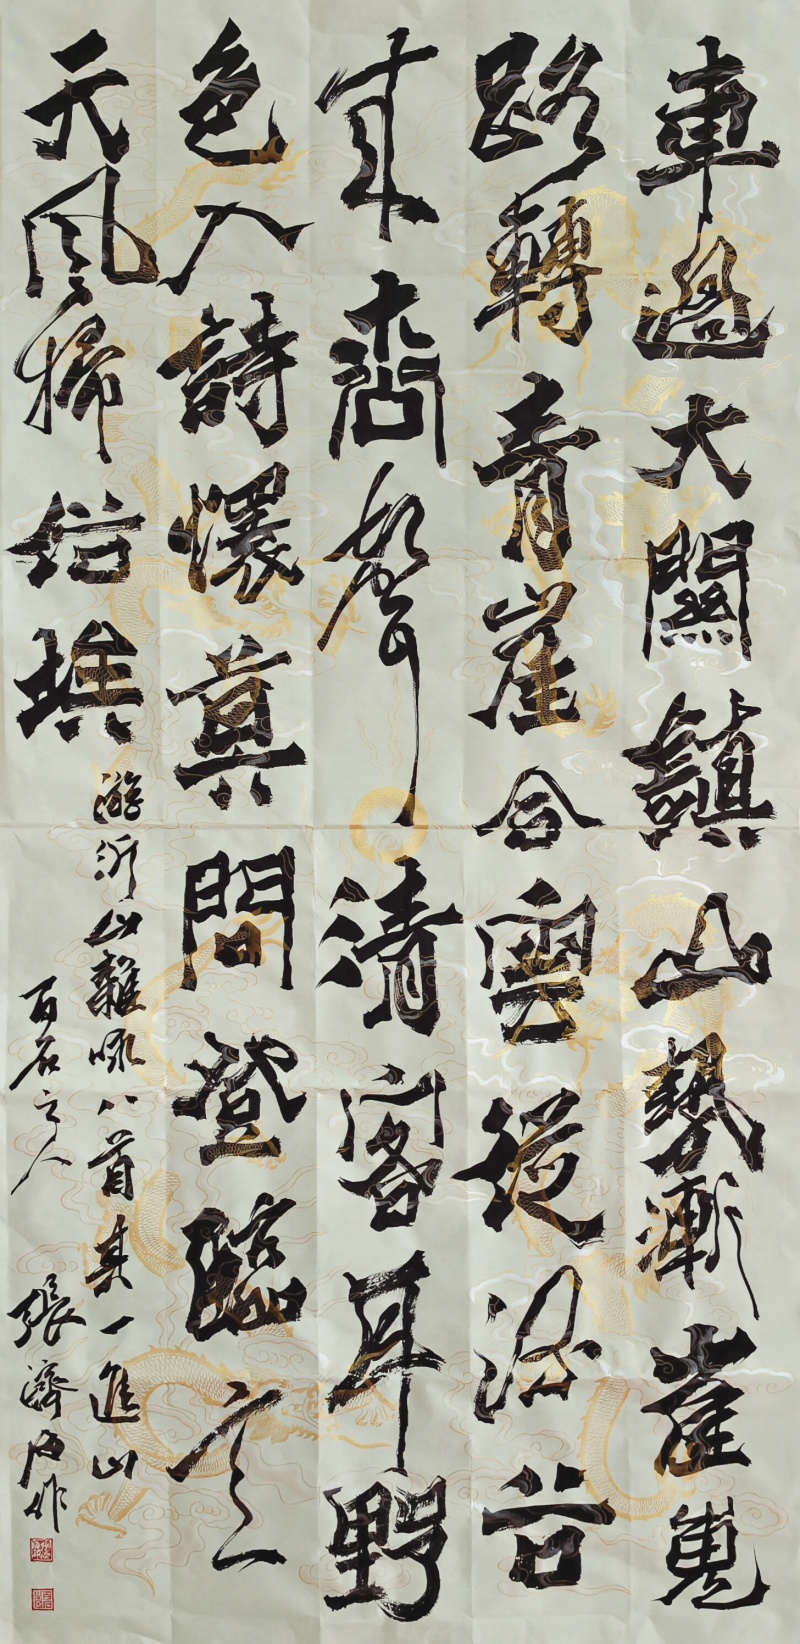 車過大關鎮山勢漸崔嵬
路轉青崖合雲從深谷
來聲清客耳野
色入詩懷莫問登臨意
天風掃俗埃
游沂山雜咏八首其一進山
百石之人張濟作